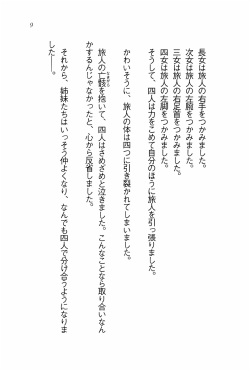 9
長女は旅人の右手をつかみました。
次女は旅人の左腕をつかみました。
三女は旅人の右足首をつかみました。
四女は旅人の左脚をつかみました。
そうして、四人は力をこめて自分のほうに旅人を引っ張りました。
かわいそうに、旅人の体は四つに引き裂かれてしまいました。
旅人の亡骸を抱いて、四人はさめざめと泣きました。こんなことなら取り合いなん
かするんじゃなかったと、心から反省しました。
それから、姉妹たちはいっそう仲よくなり、なんでも四人で分け合うようになりま
した――。